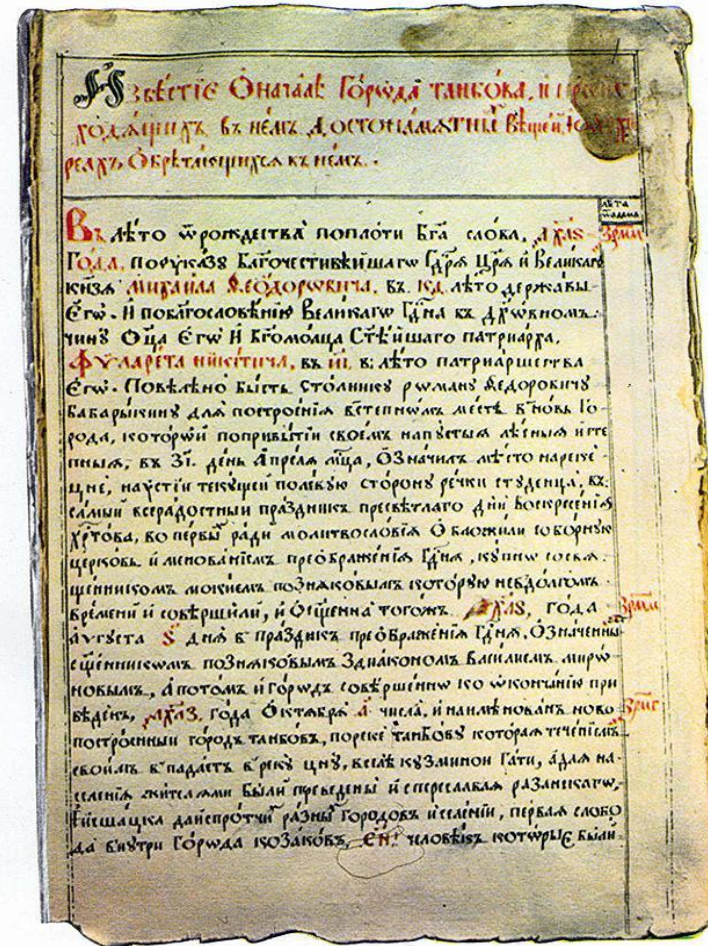 Извѣстїе Ѡ началѣ Гѡрѡда танбова, и
ходящихъ въ нѣмъ Достопамѧтны Вѣщей,
реахъ, Ѡбрѣтающихсѧ въ нѣмъ.
лѣта
ѿ адама
Въ лѣто ѿ рождества поплоти Бга слова, ҂ахлѕ
Года. поуказꙋ Благочестивѣйшагѡ Гдрѧ Црѧ и Великагѡ
кнѧзѧ Михаила Ѳеѡдорѡвича. въ кд лѣто державы
Єгѡ. И поблагословѣнїю Великагѡ Гдна въ дхѡвномъ
чинꙋ Оца Єгѡ И Бгомолца Стѣйшаго патриарха,
Фѷларета никитича, въ лѣто патриаршества
Єгѡ. Повѣлѣно бысть столникꙋ рѡманꙋ Ѳедоровичꙋ
бабарыкинꙋ длѧ построенїѧ встепномъ местѣ вновь Го-
рода, которѡй поприбытїи своемъ напꙋстыѧ лѣсныѧ и сте
пныѧ, въ зі день Апрелѧ мца, Ѡзначилъ мѣсто нарече
нꙋстїи текꙋщей полевꙋю сторонꙋ речки стꙋденца, въ
самый всерадостный праздникъ пресвѣтлаго днѧ воскресенїѧ
Хртова, во первы ради молитвословїѧ Ѡбложили соборнꙋю
церковь именованїемъ преѡбраженїѧ Гднѧ, кꙋпнѡ сосвѧ-
щенникомъ мокїемъ познѧковымъ которꙋю невдолгомъ
времени и совѣршили, и Ѡсщенна тогожъ ҂ахлѕ, года
аѵгꙋста ѕ днѧ в праздникъ преѡбраженїѧ Гднѧ. Ѡзначенны
сщенникомъ познѧковымъ здиакономъ Василиемъ мирѡ
новымъ, а потомъ и горѡдъ совѣршеннѡ ко ѡкончанїю при
вѣденъ, ҂ахлз, года Октѧбрѧ а числа, и наименованъ ново
построенный городъ танбовъ, порекѣ танбовꙋ которая теченїемъ
своимъ впадаетъ в рекꙋ цнꙋ, вселѣ кꙋзминои гати, адлѧ на-
селенїѧ жителѧми были преведены и сперселавлѧ рѧзанскагѡ,
ѿшацка даиспротчи разны городовъ иселенїи, первая слобо
да внꙋтри гѡрѡда козаковъ, человѣкъ котѡрыє были